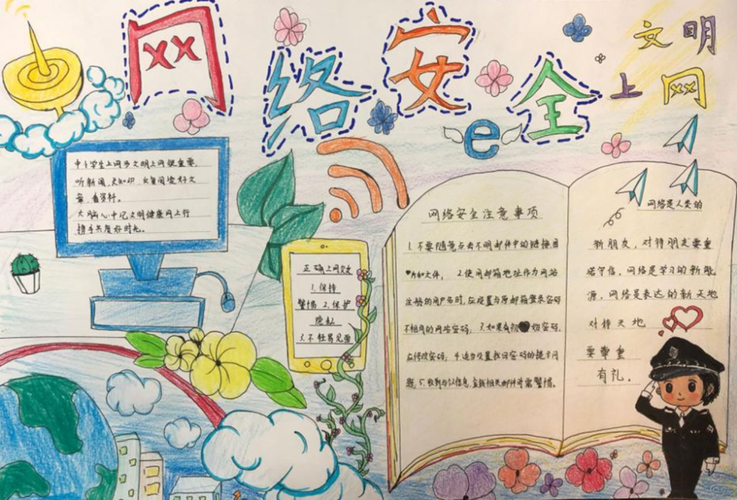 网络安全
文明
上网
e
中小学生上网多文明上网很重要,
听新闻,
文章,查资料。
大脑心中记文明健康网上行
携手共度好时光。
正确上网
1.保持
警惕 2.保护
隐私
3.不轻易见面
网络安全注意事项
1.不要随意点击不明邮件中的链接图
片和文件。2.使用邮箱地址作为网站
注册的用户名时,应设置与原邮箱登录密码
不相同的网站密码。3.如果有初始密码,
应修改密码。4.适当设置找回密码的提示问
题。5.收到与
网络是人类的
新朋友,对待朋友要重
诺守信。网络是学习的新能
源,网络是表达的新天地
对待天地
要尊重
有礼。